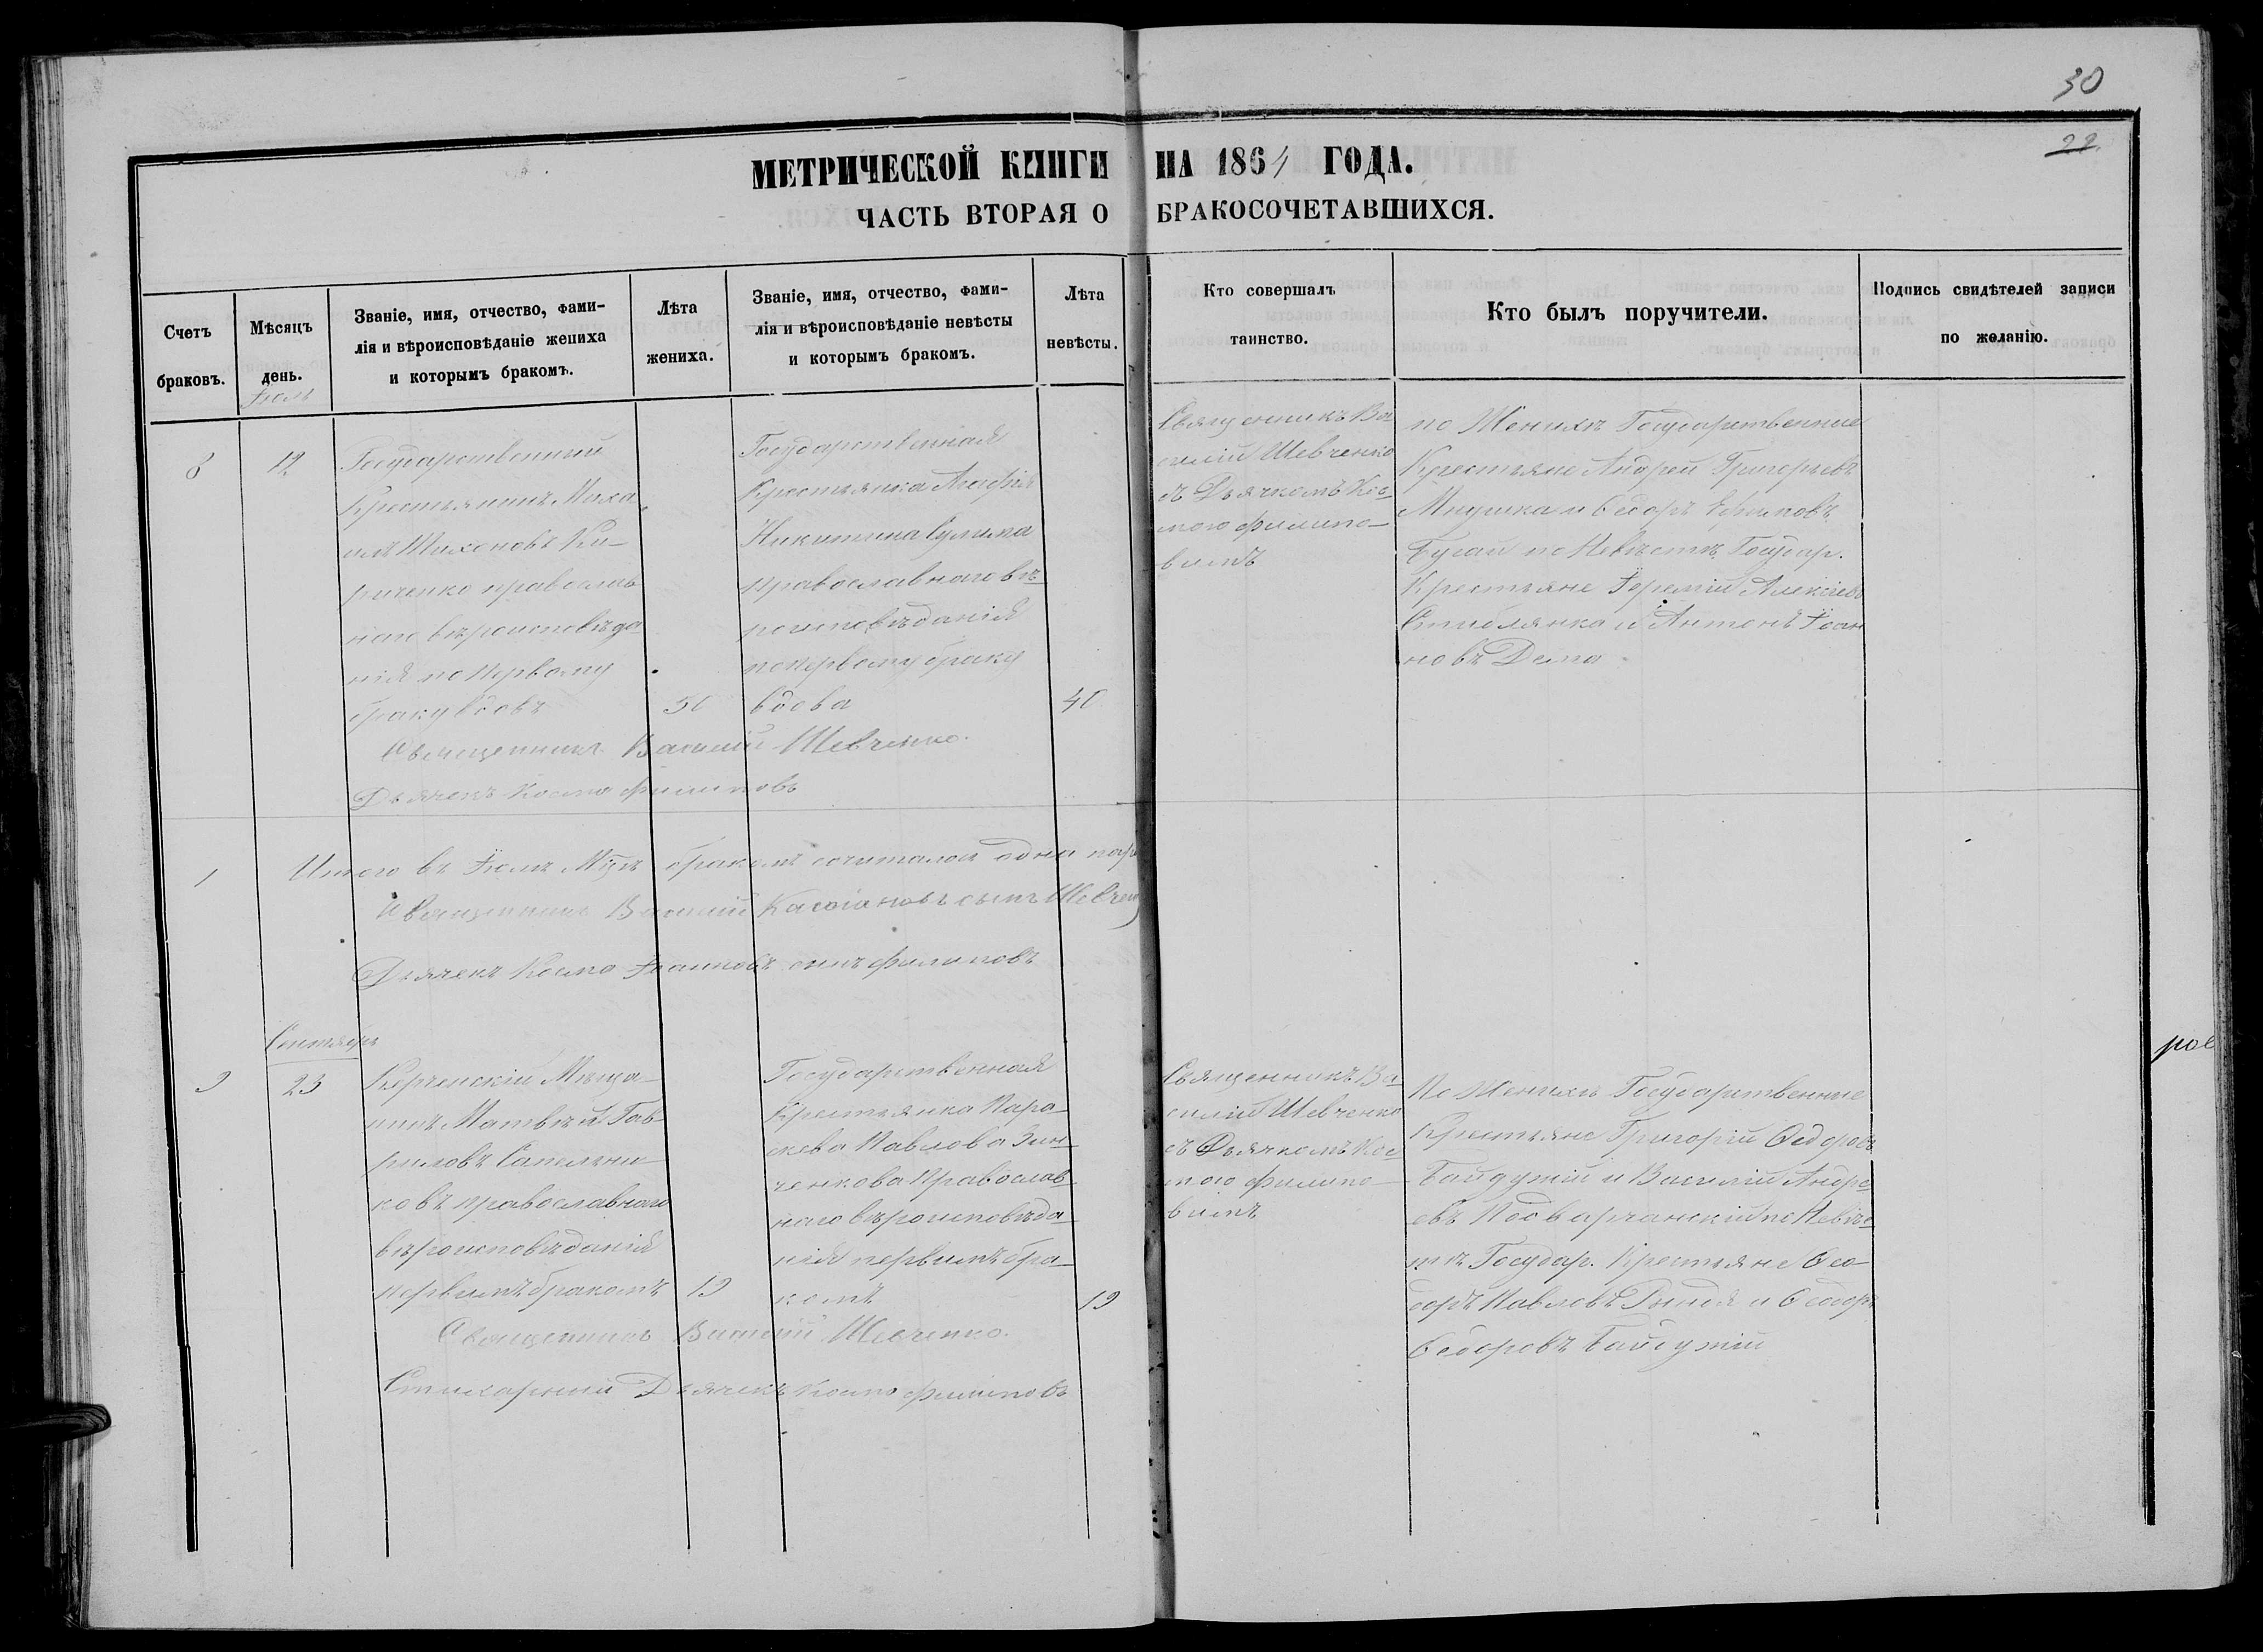 30
22
МЕТРИЧЕСКОЙ КНИГИ НА 1864 ГОДА.
ЧАСТЬ ВТОРАЯ О БРАКОСОЧЕТАВШИХСЯ.
Счетъ
браковъ.
Мѣсяцъ
день.
Званіе, имя, отчество, фами-
лія и вѣроисповѣданіе жениха
и которымъ бракомъ.
Лѣта
жениха.
Званіе, имя, отчество, фами-
лія и вѣроисповѣданіе невѣсты
и которымъ бракомъ.
Лѣта
невѣсты.
Кто совершалъ
таинство.
Кто былъ поручители.
Подпись свидѣтелей записи
по желанію.
Іюль
8
12
Государственный
Крестьянинъ Миха
илъ Тихоновъ Ки-
риченко православ
наго вѣроисповѣда
нія по первому
браку вдовъ
50
Государственная
Крестьянка Агафія
Никитина Сулима
православнаго вѣ
роисповѣданія
по первому браку
вдова
40
Священникъ Ва
силій Шевченко
съ Дьячкомъ Кос
мою Филипо-
вымъ
по Женихѣ Государственные
Крестьяне Андрей Григорьевъ
и Ѳедоръ Ефимовъ
Бугай по Невѣстѣ Государ.
Крестьяне Іеремій Алексіевъ
Стиблянка и Антонъ Іоан
новъ Дема
Священникъ Василій Шевченко.
Дьячекъ Косма Филиповъ
1
Итого въ Іюлѣ Мцѣ бракомъ сочиталось одна пара
Священникъ Василій Касіановъ сынъ Шевчен
Дьячекъ Косма Іоанновъ сынъ Филиповъ
Сентябрь
9
23
Керченскій Мѣща-
нинъ Матвѣй Гав-
риловъ Сапельни-
ковъ православнаго
вѣроисповѣданія
первымъ бракомъ
19
Государственная
Крестьянка Пара-
скева Павлова Зин-
ченкова Православ
наго вѣроисповѣда-
нія первымъ бра-
комъ
19
Священникъ Ва
силій Шевченко
съ Дьячкомъ Кос
мою Филипо-
вымъ
По Женихѣ Государственные
Крестьяне Григорій Ѳедоровъ
Байдужій и Василій Андре
евъ Подварчанскій по Невѣс
тѣ Государ. Крестьяне Ѳео-
доръ Павловъ Рындя и Ѳедоръ
Ѳедоровъ Байдужій
Священникъ Василій Шевченко.
Стихарный Дьячекъ Косма Филиповъ
ров